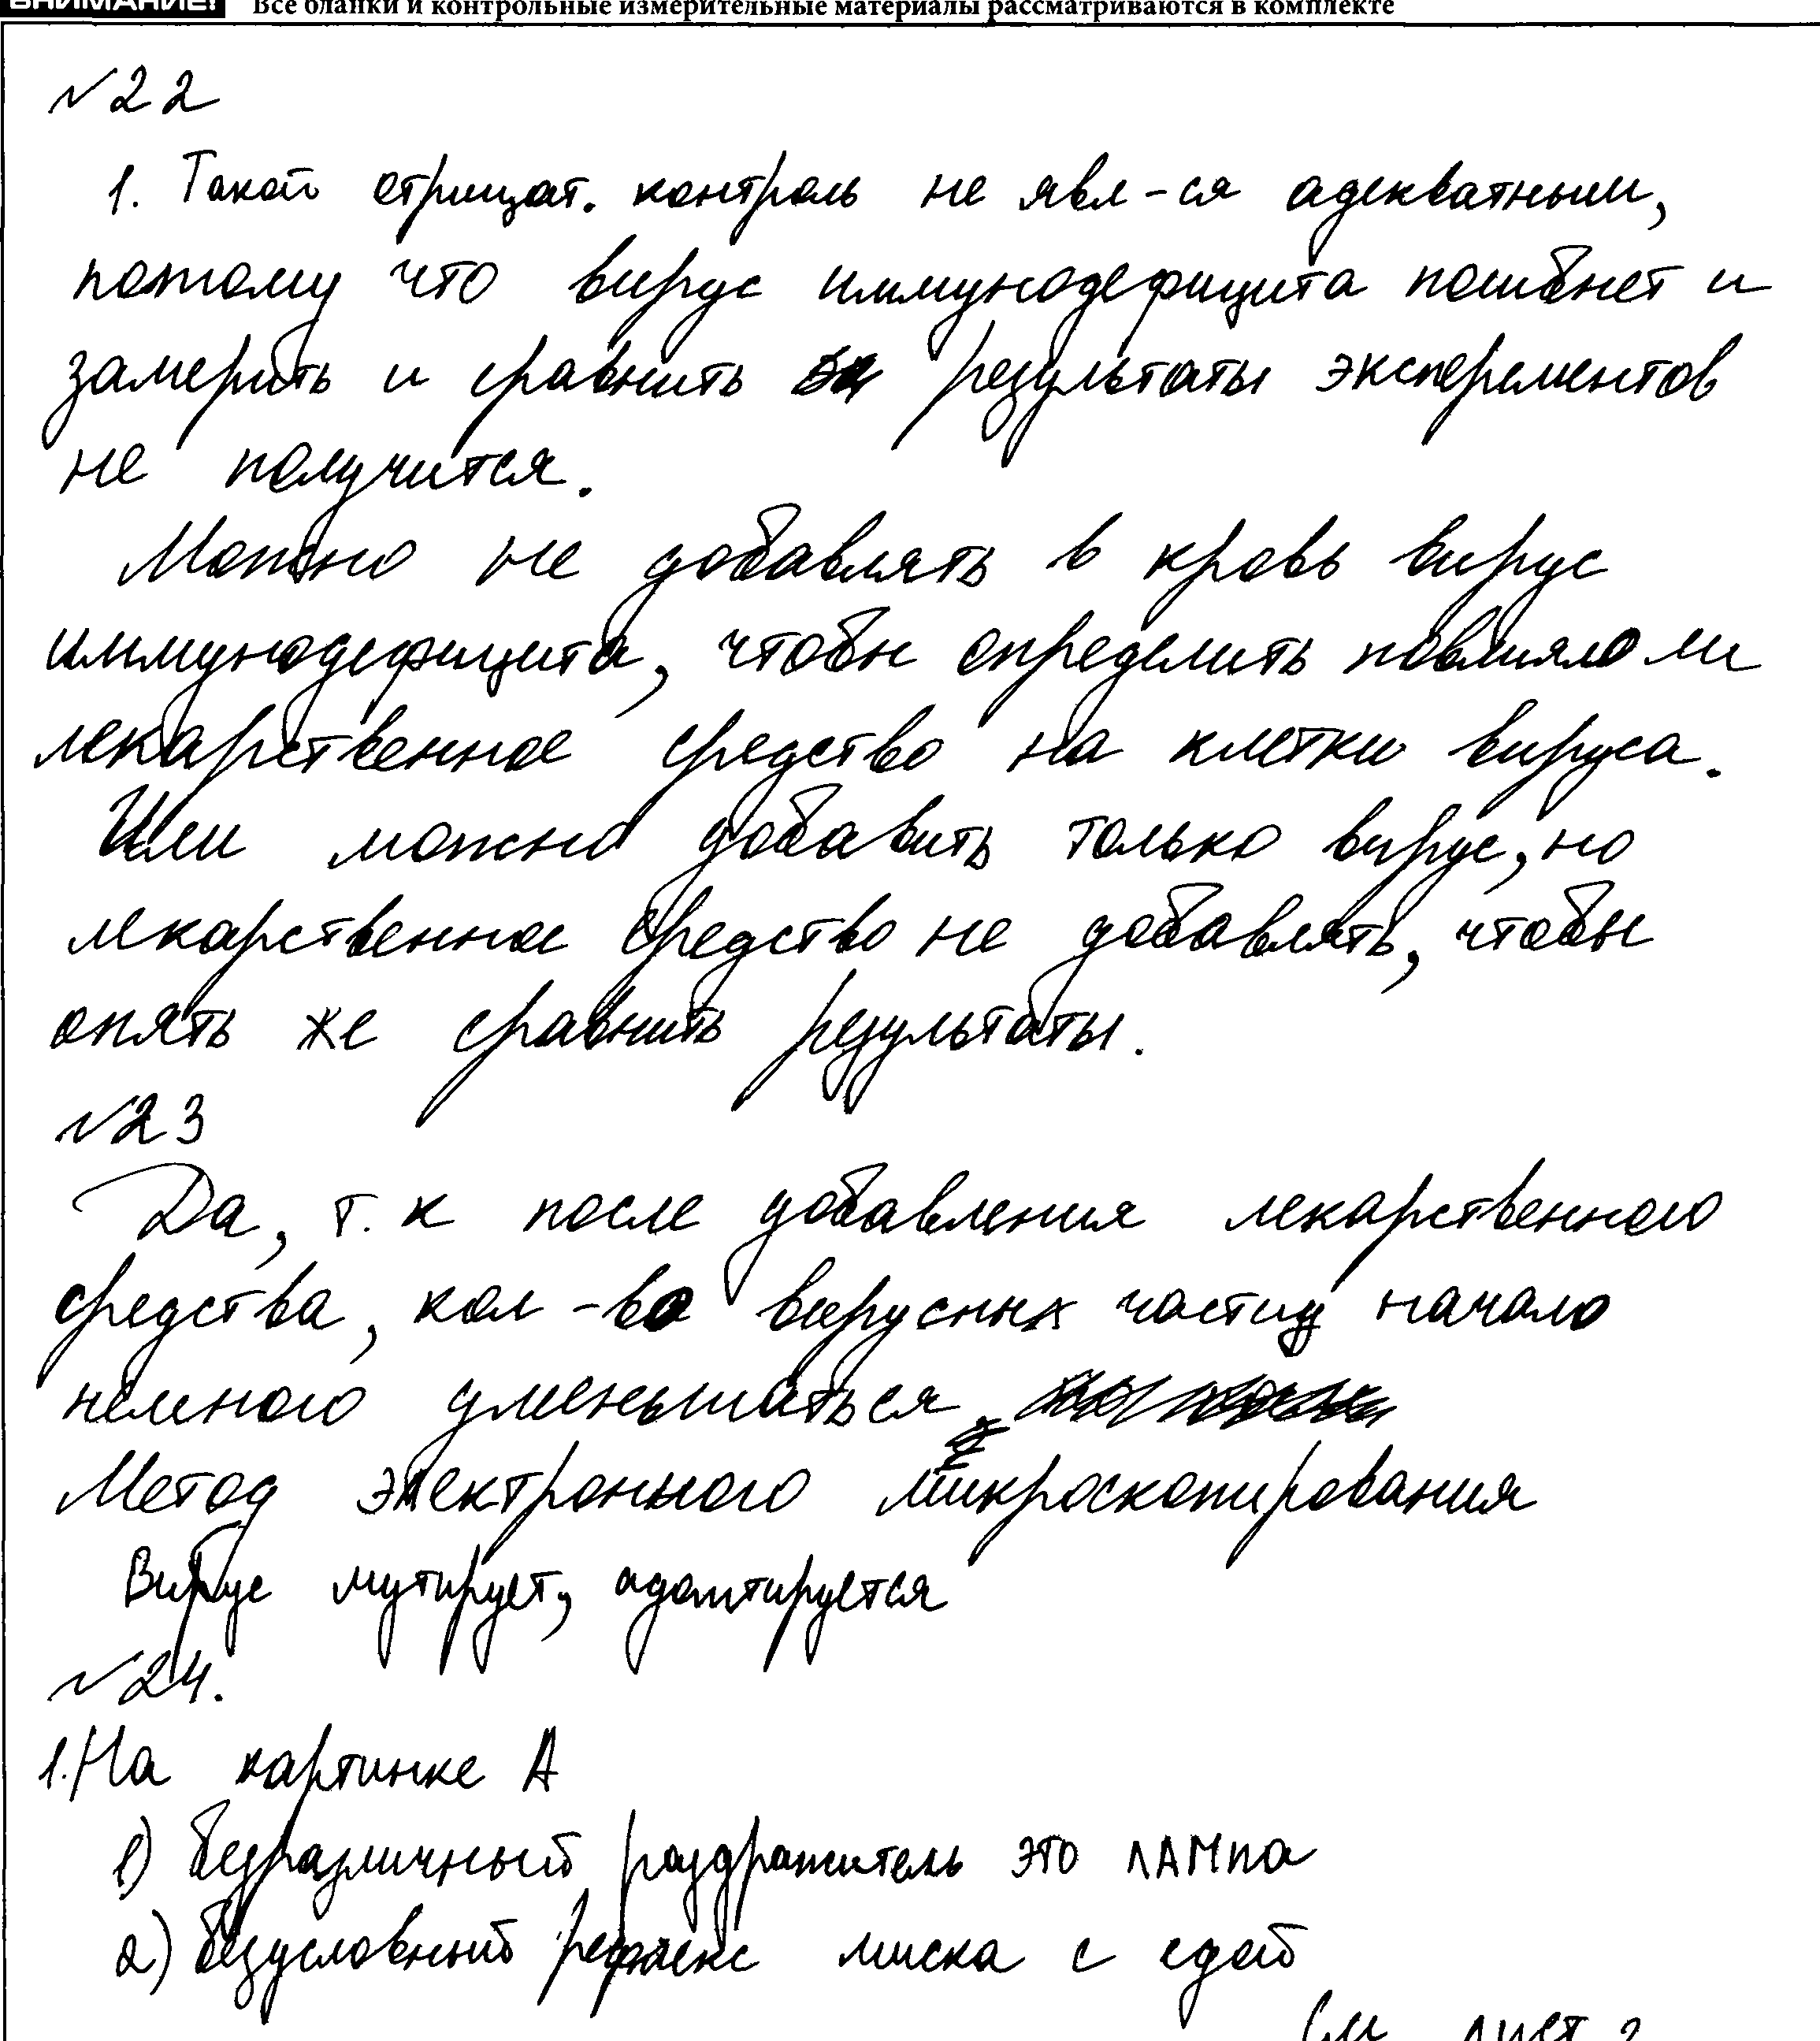 ВНИМАНИЕ! Все бланки и контрольные измерительные материалы рассматриваются в комплекте
№22
1. Такой отрицат. контроль не явл-ся адекватным,
потому что вирус иммунодефицита погибнет и
замерить и сравнить результаты эксперементов
не получится.
Можно не добавлять в кровь вирус
иммунодефицита, чтобы определить повлияло ли
лекарственное средство на клетки вируса.
Или можно добавить только вирус, но
лекарственное средство не добавлять, чтобы
опять же сравнить результаты.
№23
Да, т.к после добавления лекарственного
средства, кол-во вирусных частиц начало
немного уменьшаться.
Метод электронного микроскопирования
Вирус мутирует, адаптируется
№24.
1. На картинке А
1) безразличный раздражитель это лАМпа
2) безусловный рефлекс миска с едой
См лист 2